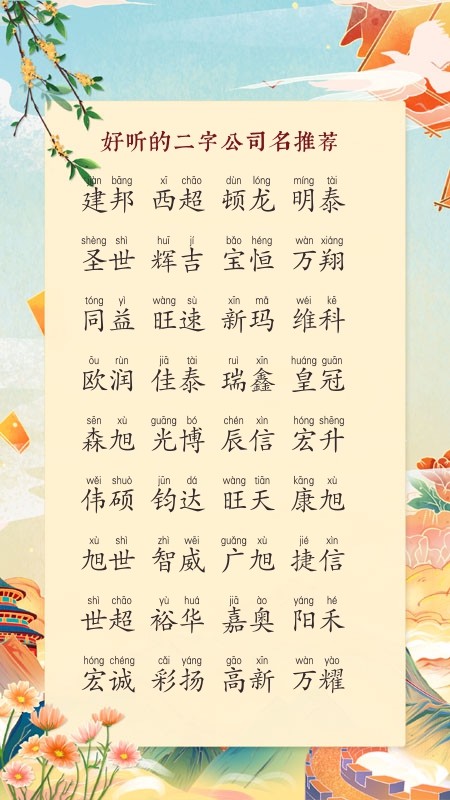 好听的二字公司名推荐
jiàn bāng xī chāo dùn lóng míng tài
建邦 西超 顿龙 明泰
shèng shì huī jí bǎo héng wàn xiáng
圣世 辉吉 宝恒 万翔
tóng yì wàng sù xīn mǎ wéi kē
同益 旺速 新玛 维科
ōu rùn jiā tài ruì xīn huáng guān
欧润 佳泰 瑞鑫 皇冠
sēn xù guāng bó chén xìn hóng shēng
森旭 光博 辰信 宏升
wěi shuò jūn dá wàng tiān kāng xù
伟硕 钧达 旺天 康旭
xù shì zhì wēi guǎng xù jié xìn
旭世 智威 广旭 捷信
shì chāo yù huá jiā ào yáng hé
世超 裕华 嘉奥 阳禾
hóng chéng cǎi yáng gāo xīn wàn yào
宏诚 彩扬 高新 万耀